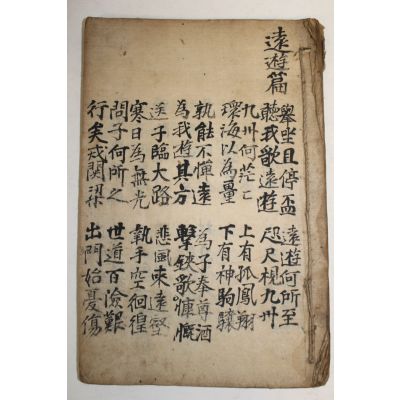 遠遊篇
擧坐且停盃
聽我歌遠遊
遠遊何所至
咫尺視九州
九州何茫々
環海以為量
上有孤鳳翔
下有神駒驤
孰能不憚遠
為我遊其方
為子奉尊酒
擊鋏歌慷慨
送子臨大路
寒日為無光
悲風來遠壑
執手空徊徨
問子何所之
行矣戒關梁
世道百險艱
出門始憂傷